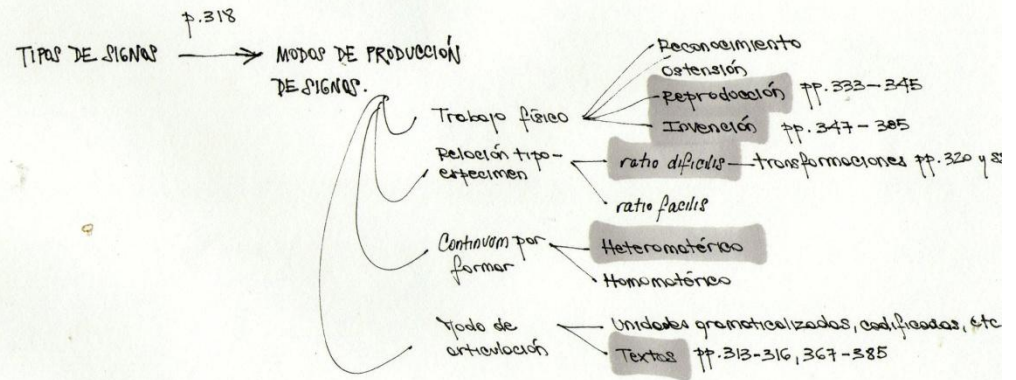 p.318
TIPOS DE SIGNOS → MODOS DE PRODUCCIÓN
DE SIGNOS.
Trabajo físico
Reconocimiento
Ostensión
Reproducción pp.333-345
Invención pp.347-385
Relación tipo-
espécimen
ratio dificilis — transformaciones pp.320 y ss
ratio facilis
Continuum por
formar
Heteromatérico
Homomatérico
Modo de
articulación
Unidades gramaticalizadas, codificadas, etc
Textos pp.313-316, 367-385